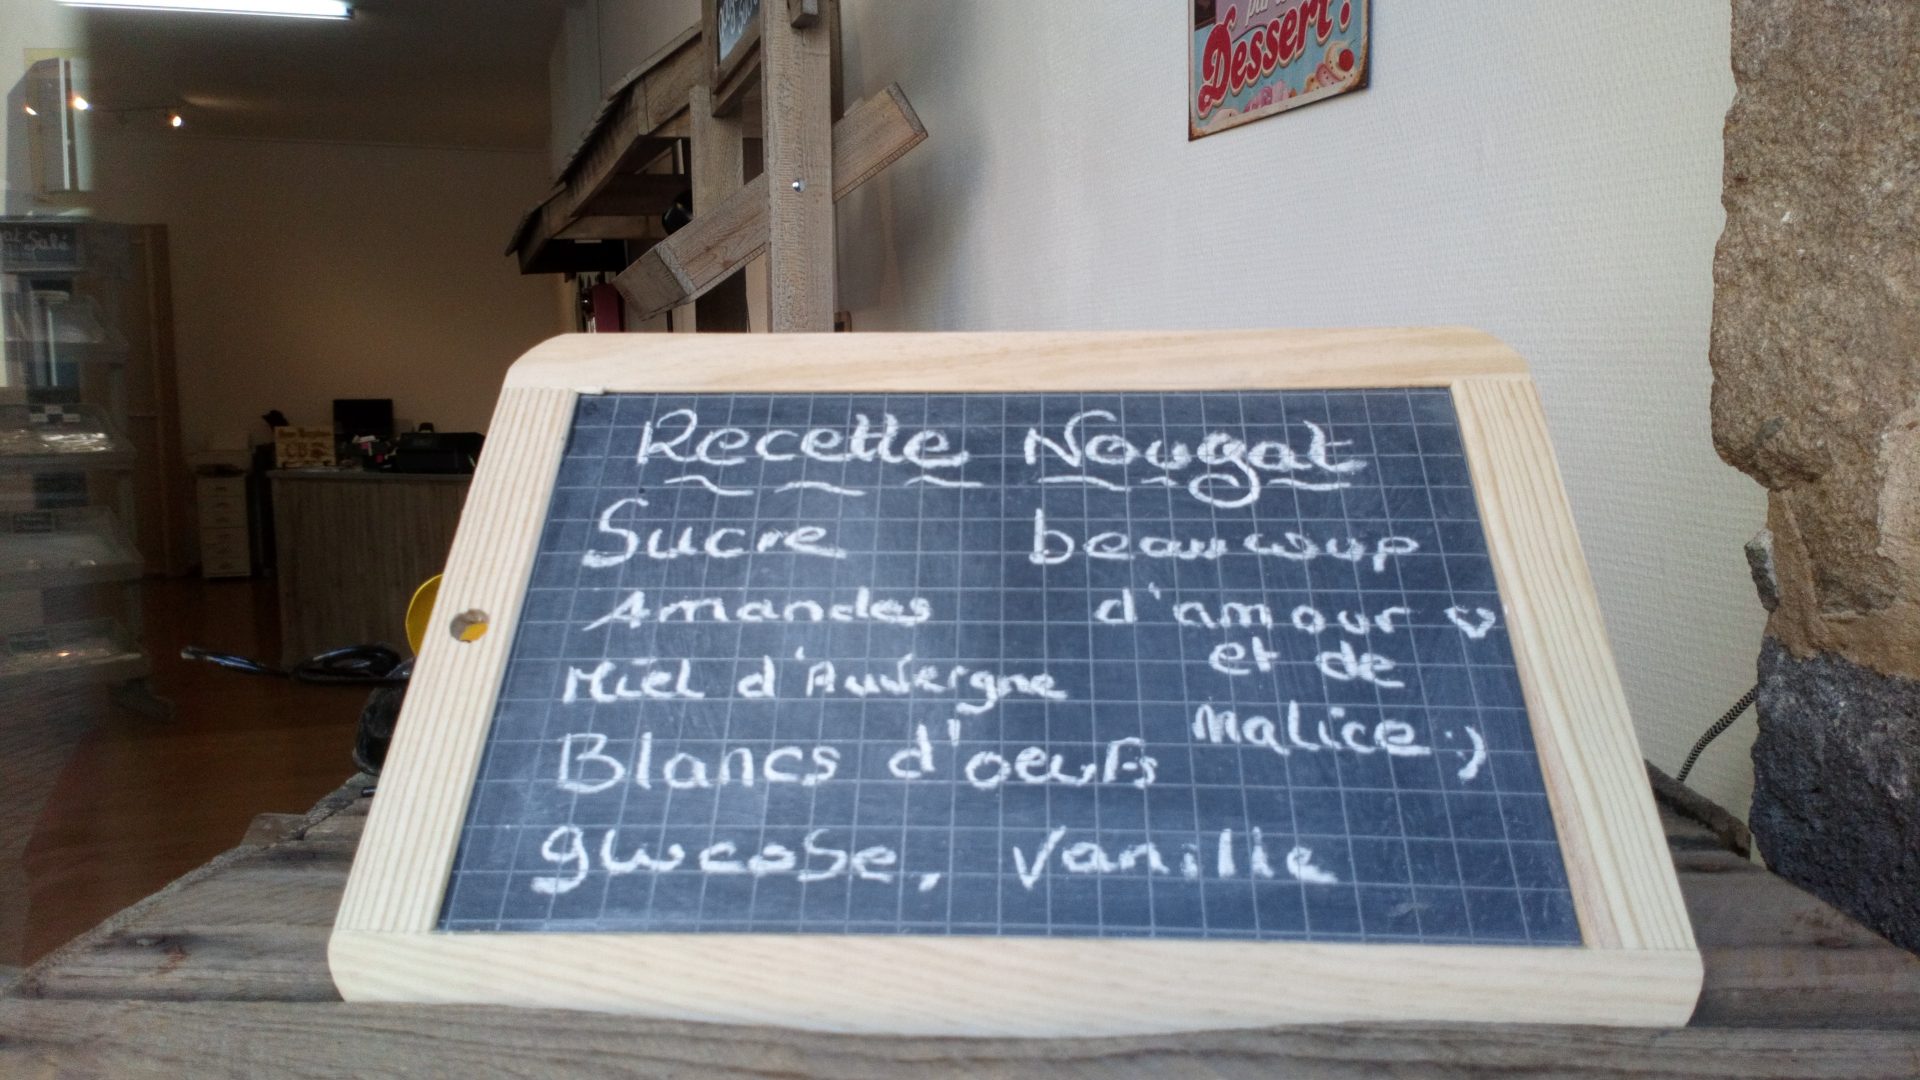 Dessert!
Recette Nougat
Sucre beaucoup
Amandes d'amour ♡
et de
Miel d'Auvergne
malice :)
Blancs d'oeufs
glucose, Vanille
CB
Salé